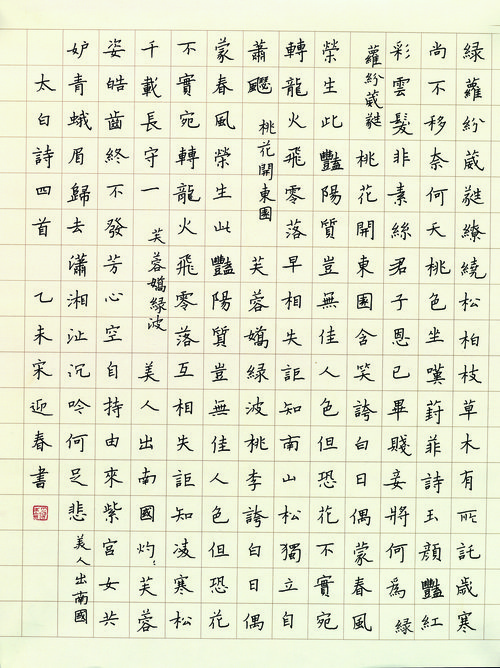 綠蘿紛葳蕤繚繞松柏枝草木有所託歲寒
尚不移奈何夭桃色坐嘆葑菲詩玉顏豔紅
彩雲髮非素絲君子恩已畢賤妾將何為 綠
蘿紛葳蕤 桃花開東園含笑誇白日偶蒙春風
榮生此豔陽質豈無佳人色但恐花不實宛
轉龍火飛零落早相失詎知南山松獨立自
蕭飋 桃花開東園 芙蓉嬌綠波桃李誇白日偶
蒙春風榮生此豔陽質豈無佳人色但恐花
不實宛轉龍火飛零落互相失詎知凌寒松
千載長守一 芙蓉嬌綠波 美人出南國灼〻芙蓉
姿皓齒終不發芳心空自持由來紫宮女共
妒青蛾眉歸去瀟湘沚沉吟何足悲 美人出南國
太白詩四首 乙未宋迎春書